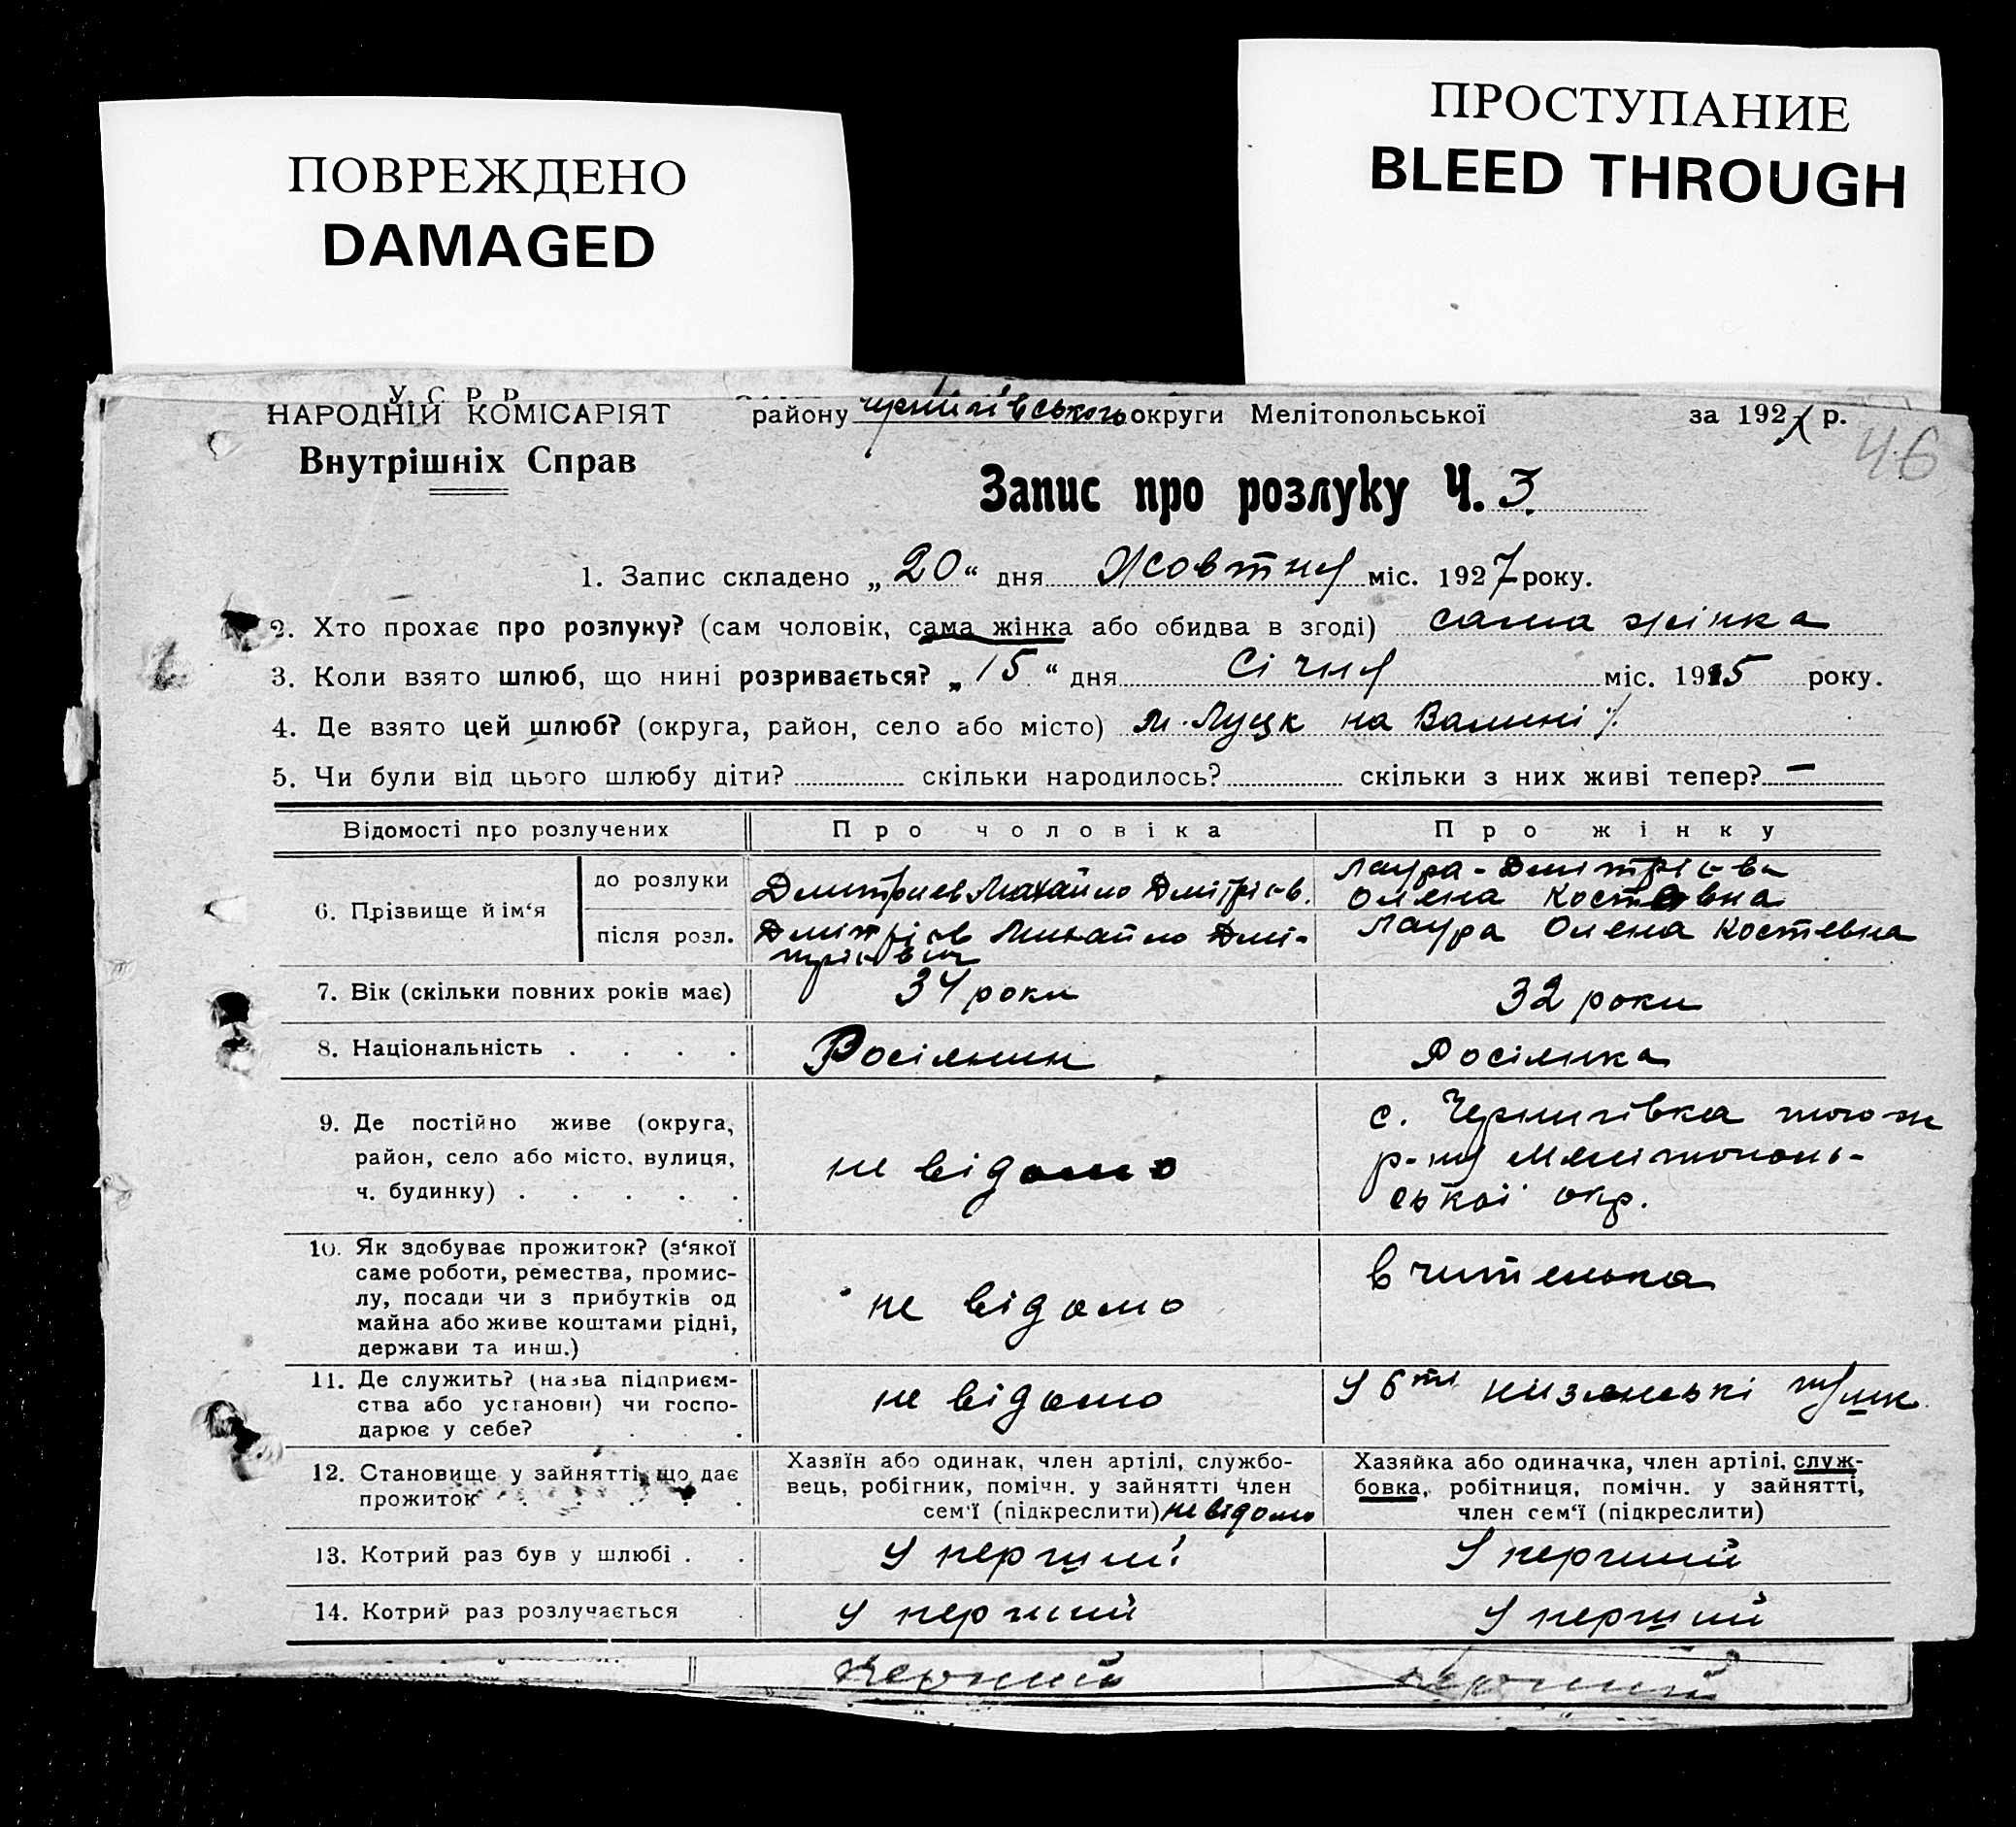 ПОВРЕЖДЕНО
DAMAGED
ПРОСТУПАНИЕ
BLEED THROUGH
У. С. Р. Р.
НАРОДНІЙ КОМІСАРІЯТ
Внутрішніх Справ
району Чернігівського округи Мелітопольської за 1927 р.
46
Запис про розлуку Ч. 3.
1. Запис складено „20“ дня Жовтня міс. 1927 року.
2. Хто прохає про розлуку? (сам чоловік, сама жінка або обидва в згоді) сама жінка
3. Коли взято шлюб, що нині розривається? „15“ дня Січня міс. 1915 року.
4. Де взято цей шлюб? (округа, район, село або місто) м. Луцк на Валині
5. Чи були від цього шлюбу діти? скільки народилось? скільки з них живі тепер? —
Відомості про розлучених Про чоловіка Про жінку
6. Прізвище й ім‘я
до розлуки Дмитриев Михайло Дмітрієв.
Лаура-Дмітрієва
Олена Костевна
після розл. Дмітрієв Михайло Дмі-
трієвич
Лаура Олена Костевна
7. Вік (скільки повних років має) 34 роки 32 роки
8. Національність . . . . Росіянин Росіянка
9. Де постійно живе (округа,
район, село або місто, вулиця,
ч. будинку) . . . . .
не відомо
с. Чернигівка того-ж
р-ну Мелітополь-
ської окр.
10. Як здобуває прожиток? (з‘якої
саме роботи, ремества, промис-
лу, посади чи з прибутків од
майна або живе коштами рідні,
держави та инш.)
не відомо
вчителька
11. Де служить? (назва підприєм-
ства або установи) чи госпо-
дарює у себе?
не відомо
У 6ті
12. Становище у зайнятті, що дає
прожиток . . . . .
Хазяїн або одинак, член артілі, службо-
вець, робітник, помічн. у зайнятті член
сем‘ї (підкреслити) не відомо
Хазяйка або одиначка, член артілі, служ-
бовка, робітниця, помічн. у зайнятті,
член сем‘ї (підкреслити)
13. Котрий раз був у шлюбі . . У перший У перший
14. Котрий раз розлучається У перший У перший
перший перший